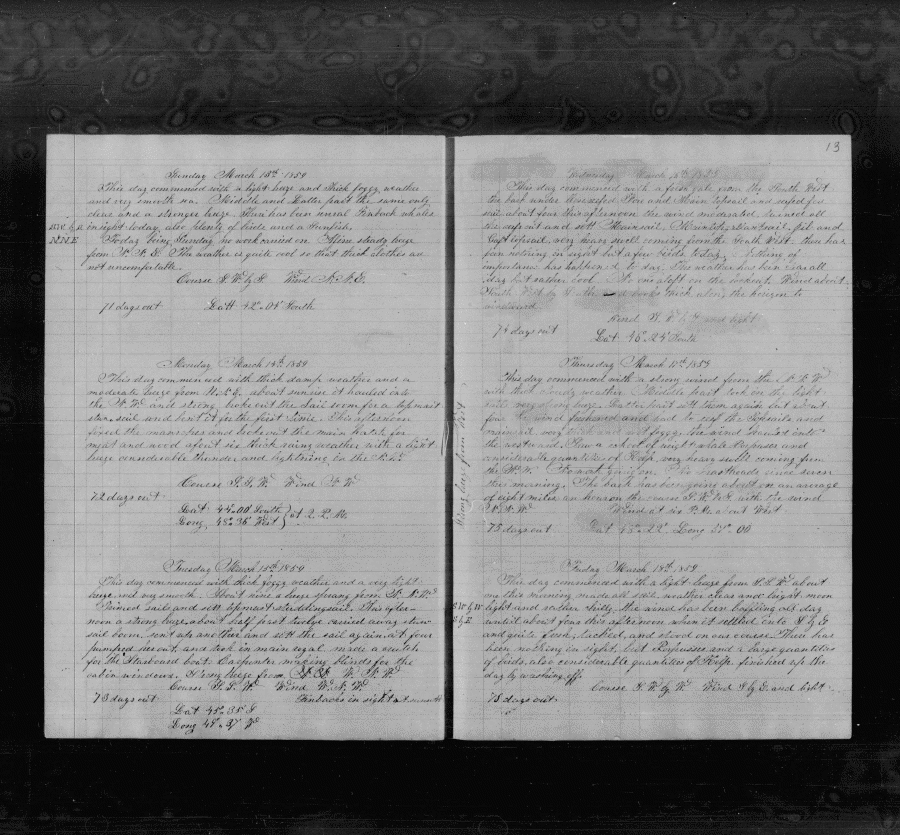 Sunday March 13th 1859
This day commenced with a light breeze and thick foggy weather
and very smooth sea. Middle and Latter part the same only
clear and a stronger breeze. There has been several Finback whales
in sight today, also plenty of birds and a Sunfish.
S.W. by S.
N.N.E
Today being Sunday no work carried on. Strong steady breeze
from N.N.E. The weather is quite cool so that thick clothes are
not uncomfortable.
Course S.W. by S. Wind N.N.E.
71 days out Latt 42°.04' South
Monday March 14th 1859
This day commenced with thick damp weather and a
moderate breeze from N.N.E. about sunrise it hauled into
the N.W. and strong, broke out the sail room for a topmast
stu. sail and bent it for the first time. This afternoon
fixed the and broke out the main hatch for
meat and wood afoul six thick rainy weather with a light
breeze considerable thunder and lightning in the
Course S.S.W. Wind N.W.
72 days out
Lat 44°.00 South
Long 48°.36 West } at 2. P.M.
Tuesday March 15th 1859
This day commenced with thick foggy weather and a very light
breeze, and very smooth. About nine a breeze sprang from N.N.W.
Loosed sails and sett topmast studdingsail. This after-
noon a strong breeze, about half past twelve carried away stun
sail boom, sent up another and sett the sail again, at four
pumped her out, and took in main royal, made a crutch
for the Starboard boat. Carpenter making blinds for the
cabin windows. Strong breeze from W. N.W.
Course S.S.W. Wind W.N.W.
73 days out Finbacks in sight at sunset
Lat 45°.35' S
Long 49°.37 W
Strong breeze from West
13
Wednesday March 16th 1859
This day commenced with a fresh gale from the South West
the bark under close reefed Fore and Main topsail and reefed fore
sail about four this afternoon the wind moderated, turned all
the reefs out and sett Mainsail, Mainstaysail, jib and
Gaff topsail, very heavy swell coming from the South West. there has
been nothing in sight but a few birds today. Nothing of
importance has happened to day. The weather has been clear all
day but rather cool. No one aloft on the lookout. Wind about
South West by and looks thick along the horizon to
windward.
Wind and light
74 days out Lat 46°.24' South
Thursday March 17th 1859
This day commenced with a strong wind from the N.N.W
with thick cloudy weather. Middle part took in the light
sails very strong breeze. Latter part sett them again but about
four
mainsail very thick wet foggy, the wind hauled into
the westward. Saw a school of right whale Porpoises and
considerable quantities of Kelp, very heavy swell coming from
the W.N.W. No mastheads since seven
this morning. The bark has been going about on an average
of eight miles an hour on the course S.W. by W with the wind
N.N.W. Wind at six P.M about West.
75 days out Lat 48°.22' Long 00
Friday March 18th 1859
This day commenced with a light breeze from S.S.W. about
one this morning made all sail, weather clear and bright moon
S.W. by W
S by E
light and rather chilly, the wind has been baffling all day
until about four this afternoon when it settled into S by E
and quite fresh, tacked, and stood on our course. There has
been nothing in sight, but Porpoises and a large quantities
of birds, also considerable quantities of Kelp. finished up the
day by washing off.
Course S.W. by W. Wind S by E. and light
78 days out